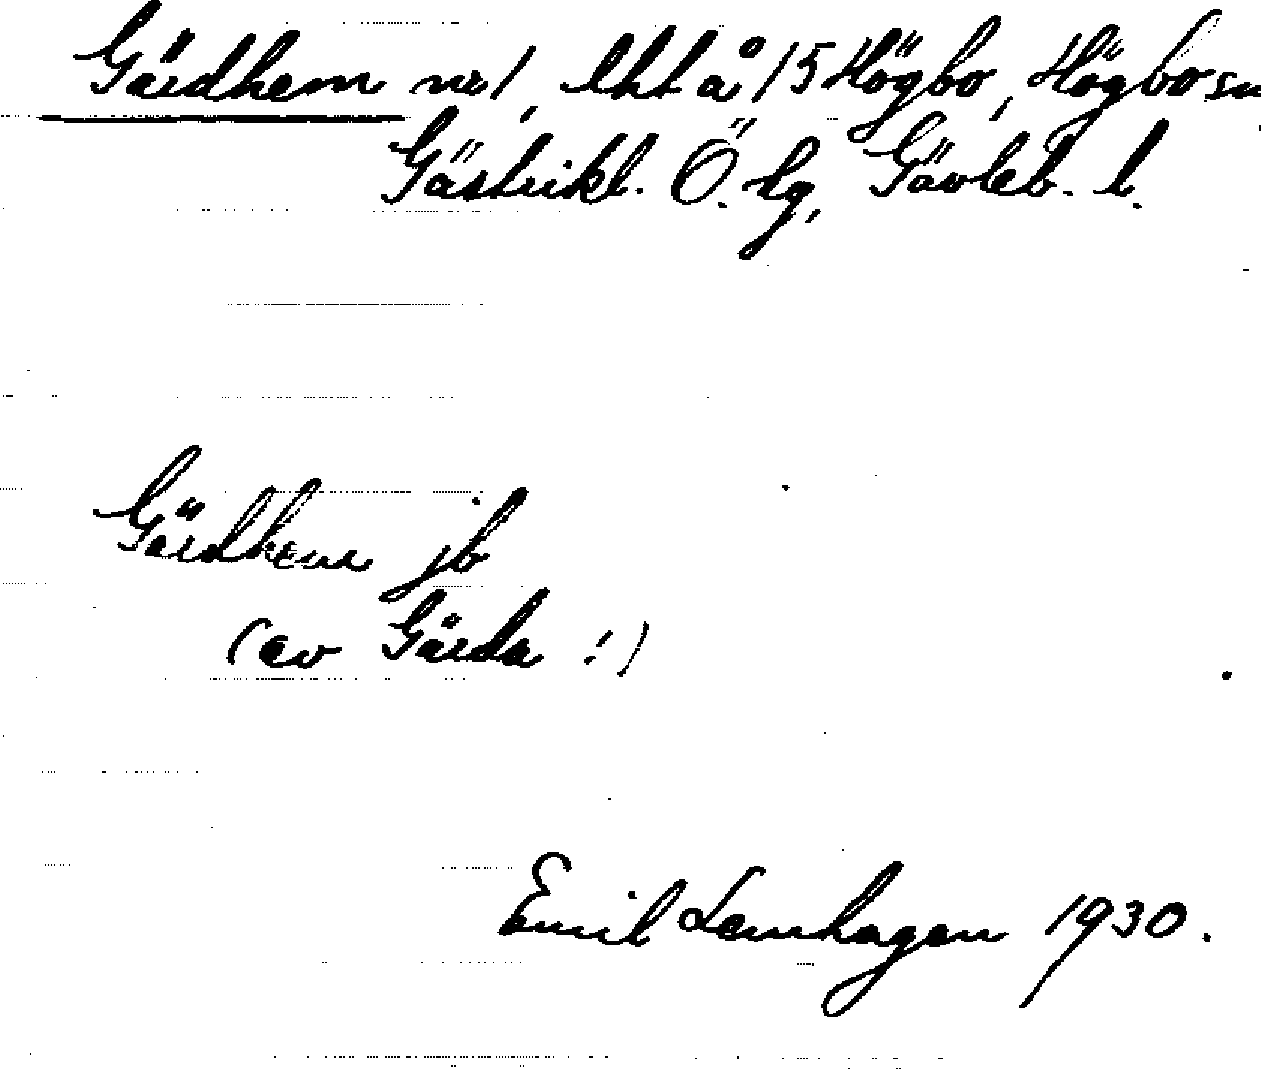 Gärdhem nr 1, lht å 1/5 Högbo, Högbo sn
Gästrikl. Ö. tg, Gävleb. l.
Gärdhem jb
(av Gärda !)
Emil Lemhagen 1930.